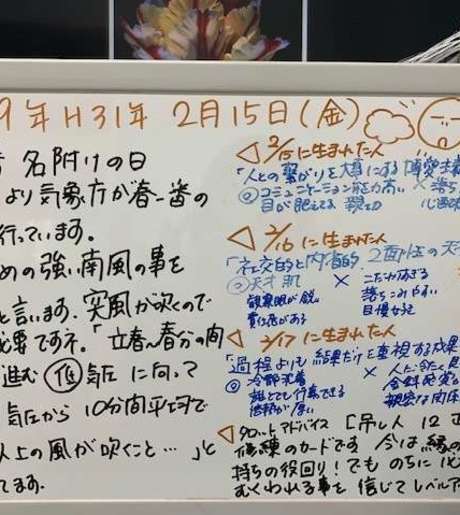 9年 H31年 2月15日(金)
名附けの日
より気象庁が春一番の
行っています。
めの強い南風の事を
と言います。突風が吹くので
必要ですネ。「立春〜春分の間
進む 低 気圧 に向って
気圧から 10分間平均で
以上の風が吹くこと…」と
てます。
2/15に生まれた人
「人との繋がりを大事にする博愛主
◎コミュニケーション能力高い ×
目が肥えてる 親切
2/16に生まれた人
「社交的と内省的 2面性の天
◎天才肌 × こだわりすぎる
観察眼が鋭い 落ちこみやすい
責任感がある 自慢
2/17に生まれた人
「過程よりも結果だけを重視する成果
◎冷静沈着 ×
誰とでも行動できる
信頼が厚い
タロットアドバイス「吊し人 12 正
修練のカードです 今は縁の
持ちの役回り!でも のちに
むくわれる事を 信じてレベルア